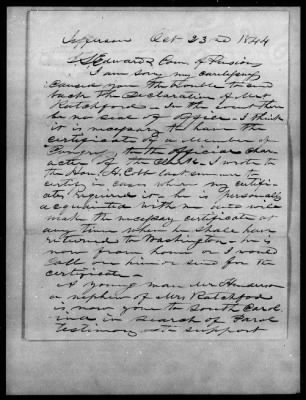 Jefferson Oct 23rd 1844
J L Edwards Com. of Pension
I am sorry my carelessness
caused you the trouble to send
back the declaration of Mrs
Ratchford - In the
be no seal of office - I think
it is necessary to have the
certificate of a member of
Congress to the official char
acter of the Clerk. I wrote to
the Hon. H. Cobb last summer to
certify in cases where my certifi-
cate required it, he is personally
acquainted with me & he will
make the necessary certificate at
any time when he shall have
returned to Washington - he is
now from home or I would
call on him or send for the
certificate -
A young man Mr Henderson
a nephew of Mrs Ratchford
is now gone to South Carol
ina in search of Parol
testimony to support